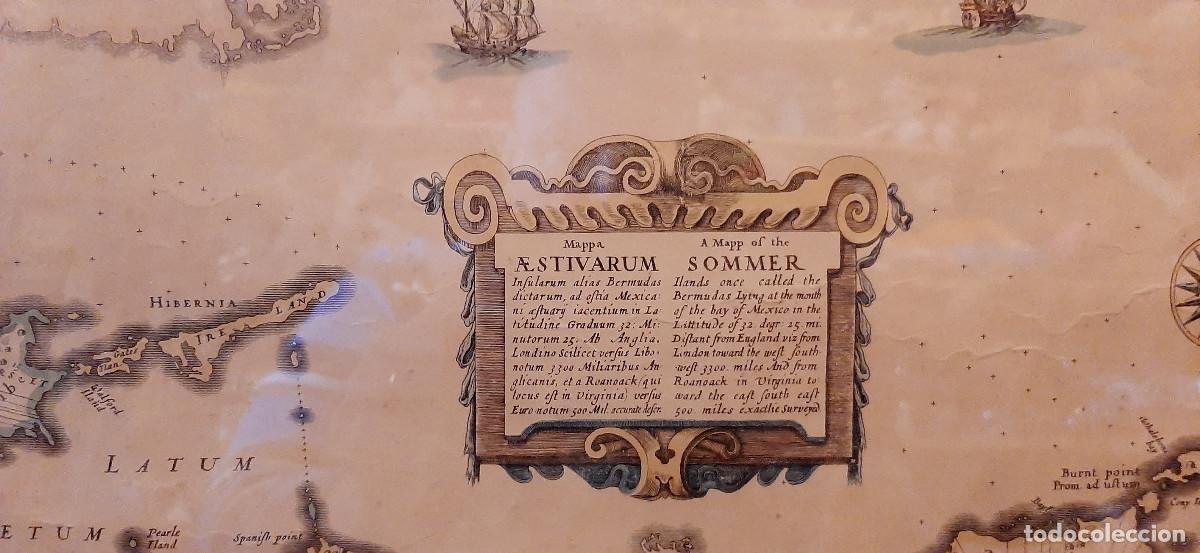 HIBERNIA
IRELAND
Gates
Iland
LATUM
ETUM
Pearle
Iland
Spanish point
Mappa
ÆSTIVARUM
Insularum alias Bermudas
dictarum, ad ostia Mexica:
ni æstuarÿ iacentium in La
titudine Graduum 32: Mi:
nutorum 25. Ab Anglia,
Londino Scilicet versus Libo:
notum 3300 Miliaribus An:
glicanis, et a Roanoack (qui
locus est in Virginia) versus
Euro notum 500 Mil. accurate descr.
A Mapp of the
SOMMER
Ilands once called the
Bermudas Lying at the mouth
of the bay of Mexico in the
Lattitude of 32 degr. 25 mi.
Distant from England viz from
London toward the west south
-west 3300. miles And from
Roanoack in Virginia to:
ward the east south east
500 miles exactlie Surveyed
Burnt point
Prom. ad ustum
Cony I
todocoleccion